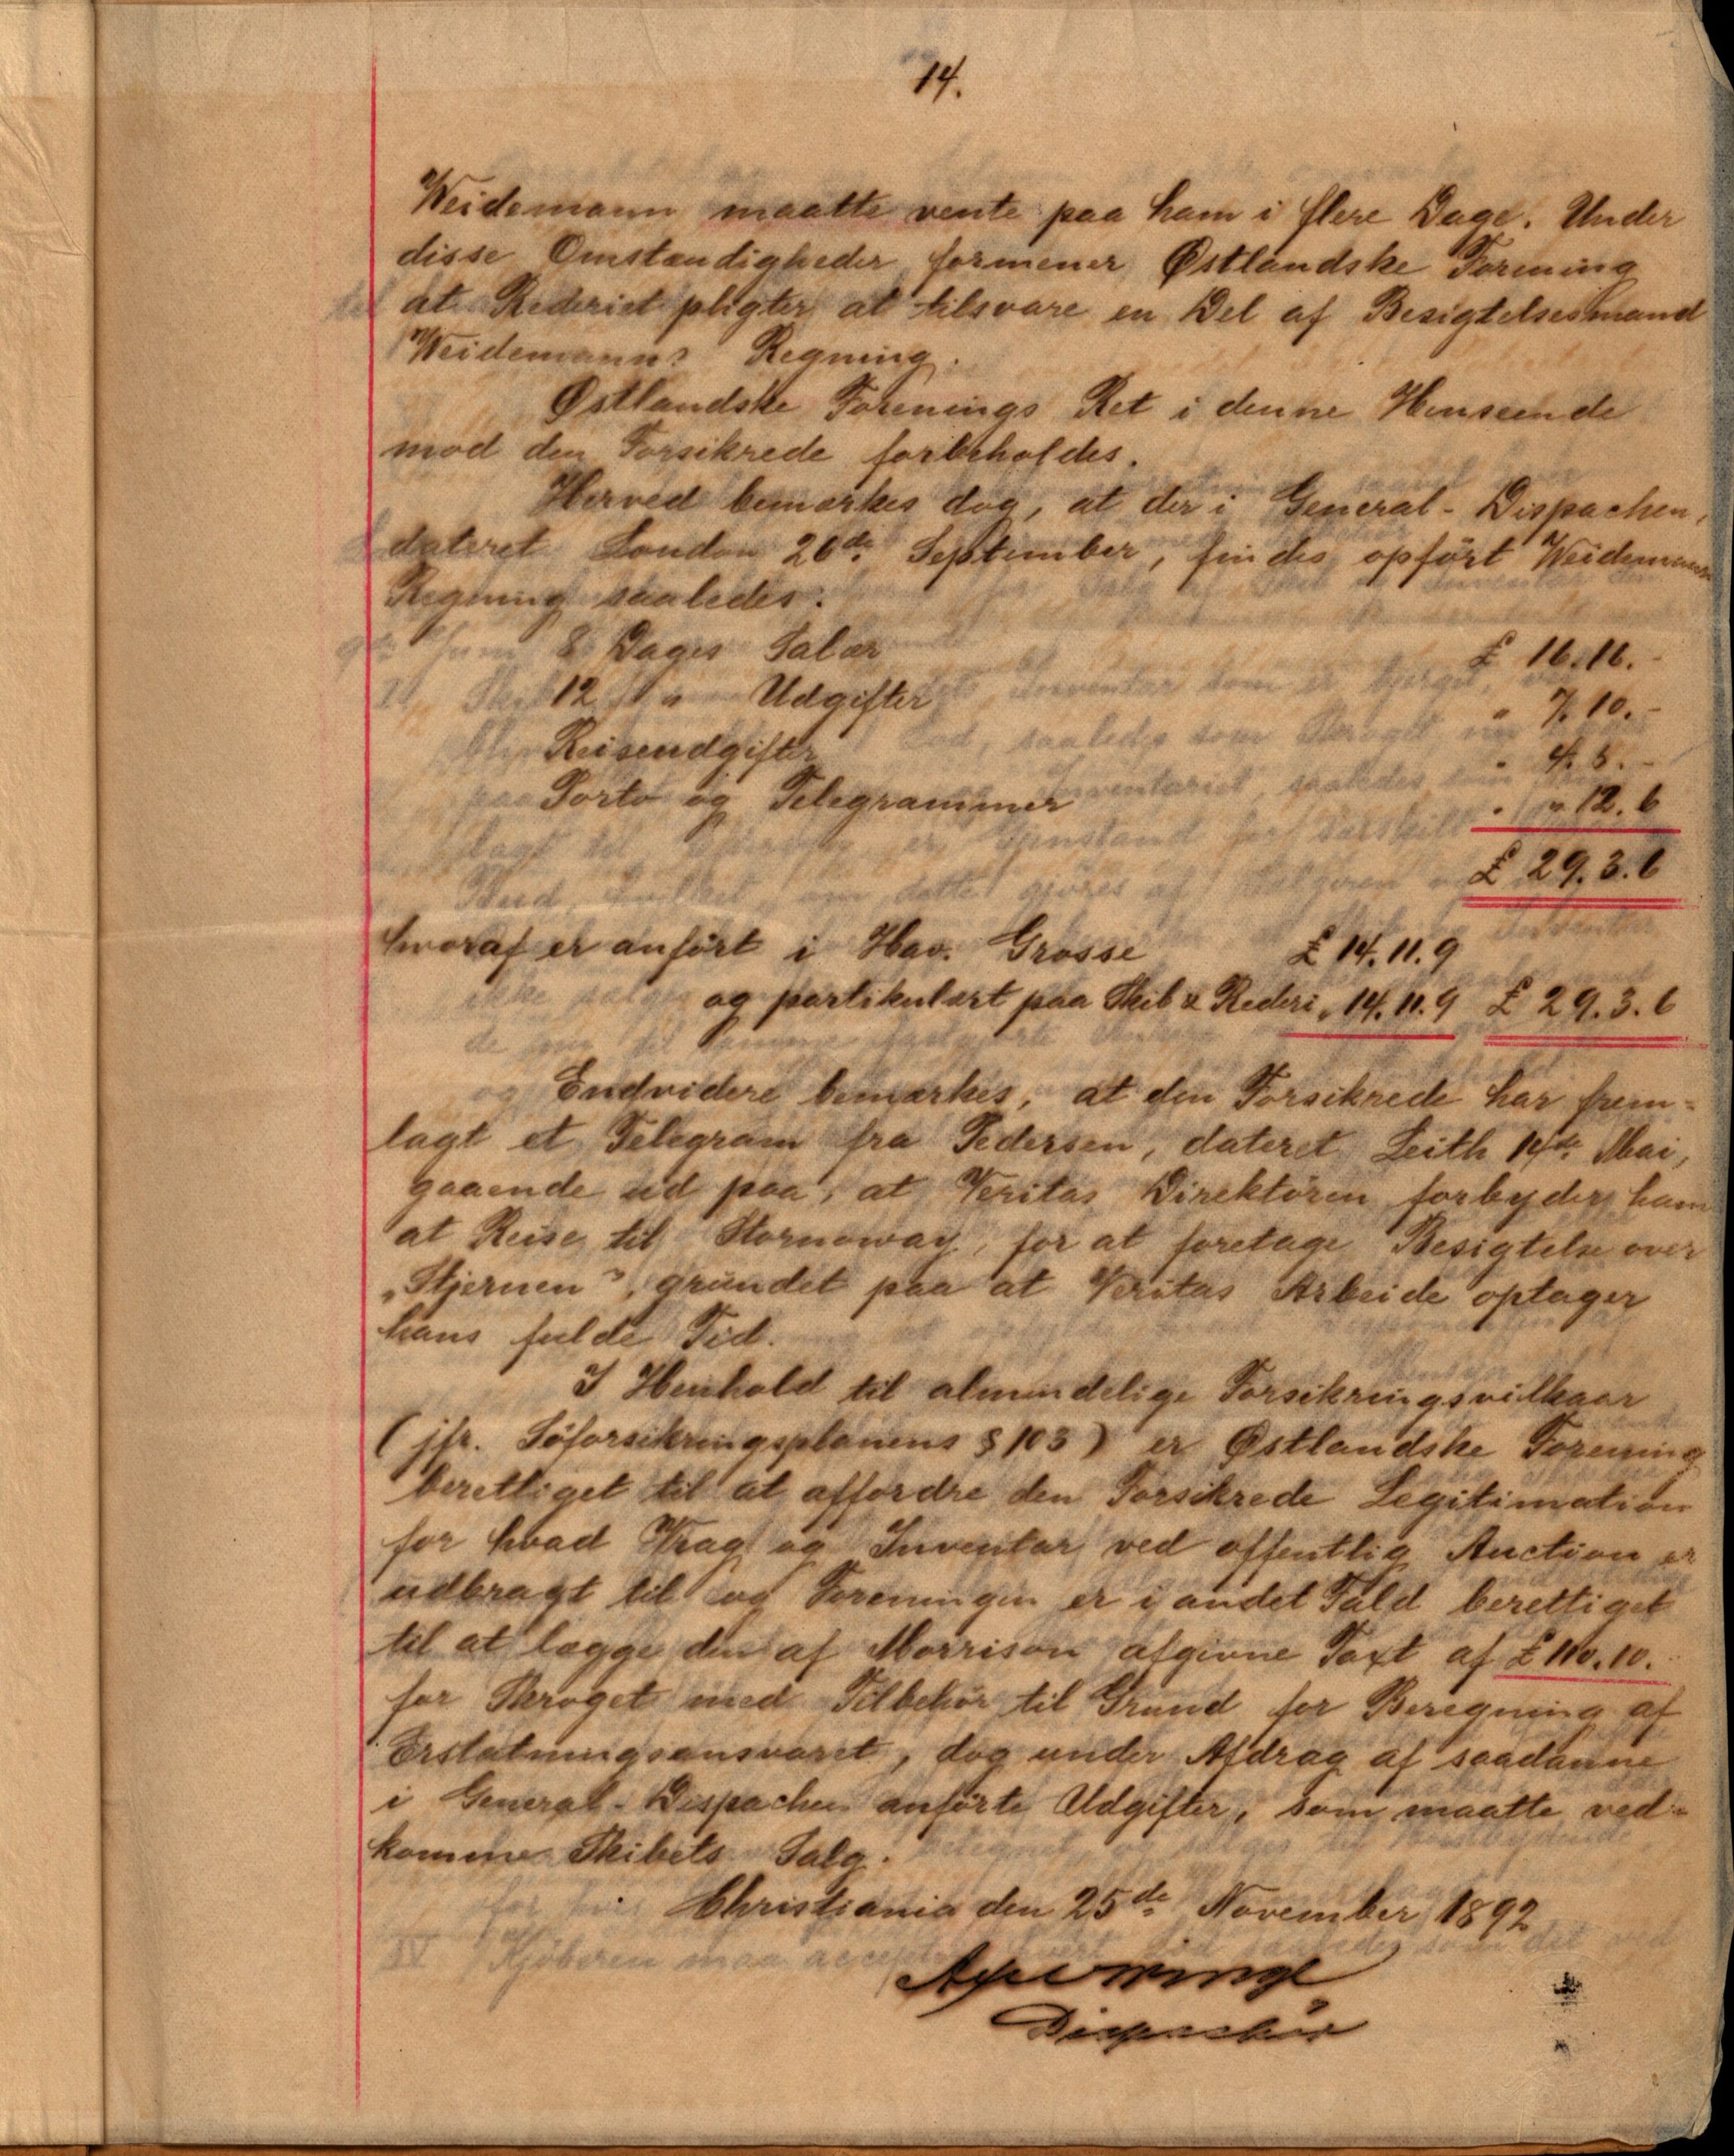 14.
Weidemann maatte vente paa ham i flere Dage. Under
disse Omstændigheder formener Østlandske Forening
at Rederiet pligter at tilsvare en Del af Besigtelsesmand
Weidemanns Regning.
Østlandske Forenings Ret i denne Henseende
mod den Forsikrede forbeholdes.
Herved bemærkes dog, at der i General-Dispachen,
dateret London 26de September, findes opført Weidemanns
Regning saaledes:
8 Dages Salær £ 16.16.-
12 " Udgifter " 7.10.-
Reiseudgifter " 4.5.-
Porto og Telegrammer " ".12.6
£ 29.3.6
hvoraf er anført i Hav. Grosse £ 14.11.9
og partikulært paa Skib & Rederi " 14.11.9 £ 29.3.6
Endvidere bemærkes, at den Forsikrede har frem-
lagt et Telegram fra Pedersen, dateret Leith 14de Mai,
gaaende ud paa, at Veritas Direktøren forbyder ham
at Reise til Stornoway, for at foretage Besigtelse over
"Stjernen", grundet paa at Veritas Arbeide optager
hans fulde Tid.
I Henhold til almindelige Forsikringsvilkaar
(jfr. Søforsikringsplanens § 103) er Østlandske Forening
berettiget til at affordre den Forsikrede Legitimation
for hvad Vrag og Inventar ved offentlig Auction er
udbragt til og Foreningen er i andet Fald berettiget
til at lægge den af Morrison afgivne Taxt af £ 110.10.-
for Vraget med Tilbehør til Grund for Beregning af
Erstatningsansvaret, dog under Afdrag af saadanne
i General-Dispachen anførte Udgifter, som maatte ved-
komme Skibets Salg.
Christiania den 25de November 1892
Dispachør